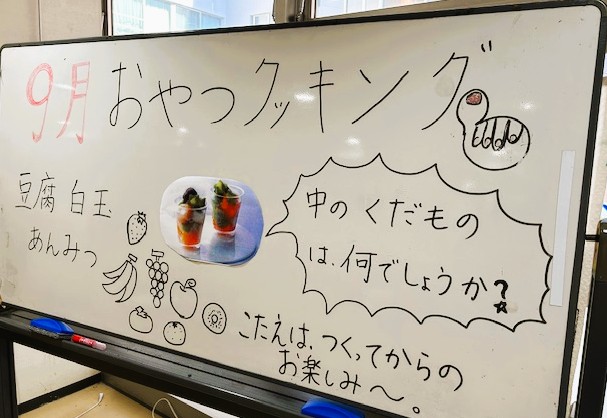 9月 おやつクッキング
豆腐 白玉
あんみつ
中の くだもの
は、何でしょうか?
こたえは、つくってからの
お楽しみ〜。